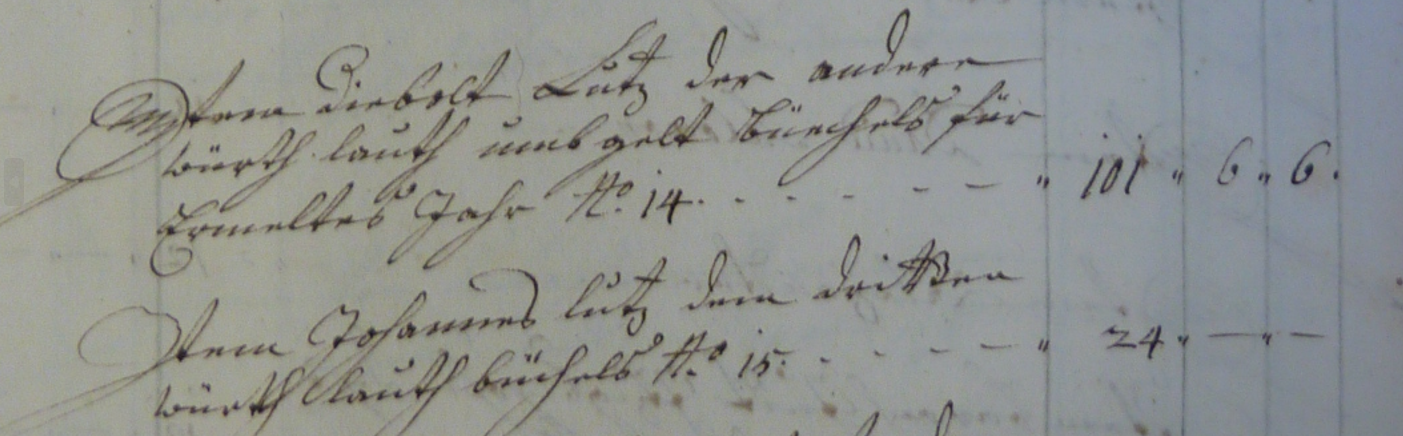 Item Diebolt Lutz der andere
würth lauth umbgelt büechels für
Ermeltes Jahr No. 14. - - - - - - " 101 " 6 " 6.
Item Johannes lutz dem dritten
würth lauth büchels No 15. - - - - - " 24 " — " —